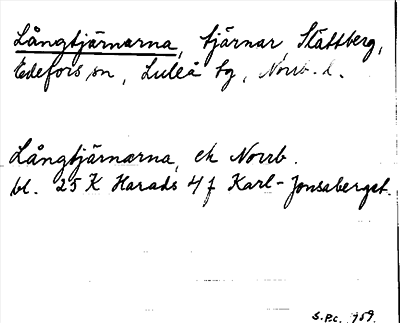 Långtjärnarna, tjärnar, Slättberg,
Edefors sn, Luleå tg, Norrb. l.
Långtjärnarna, ek Norrb.
bl. 25 K Harads 4 f Karl-Jonsaberget.
S.P.C. 1959.